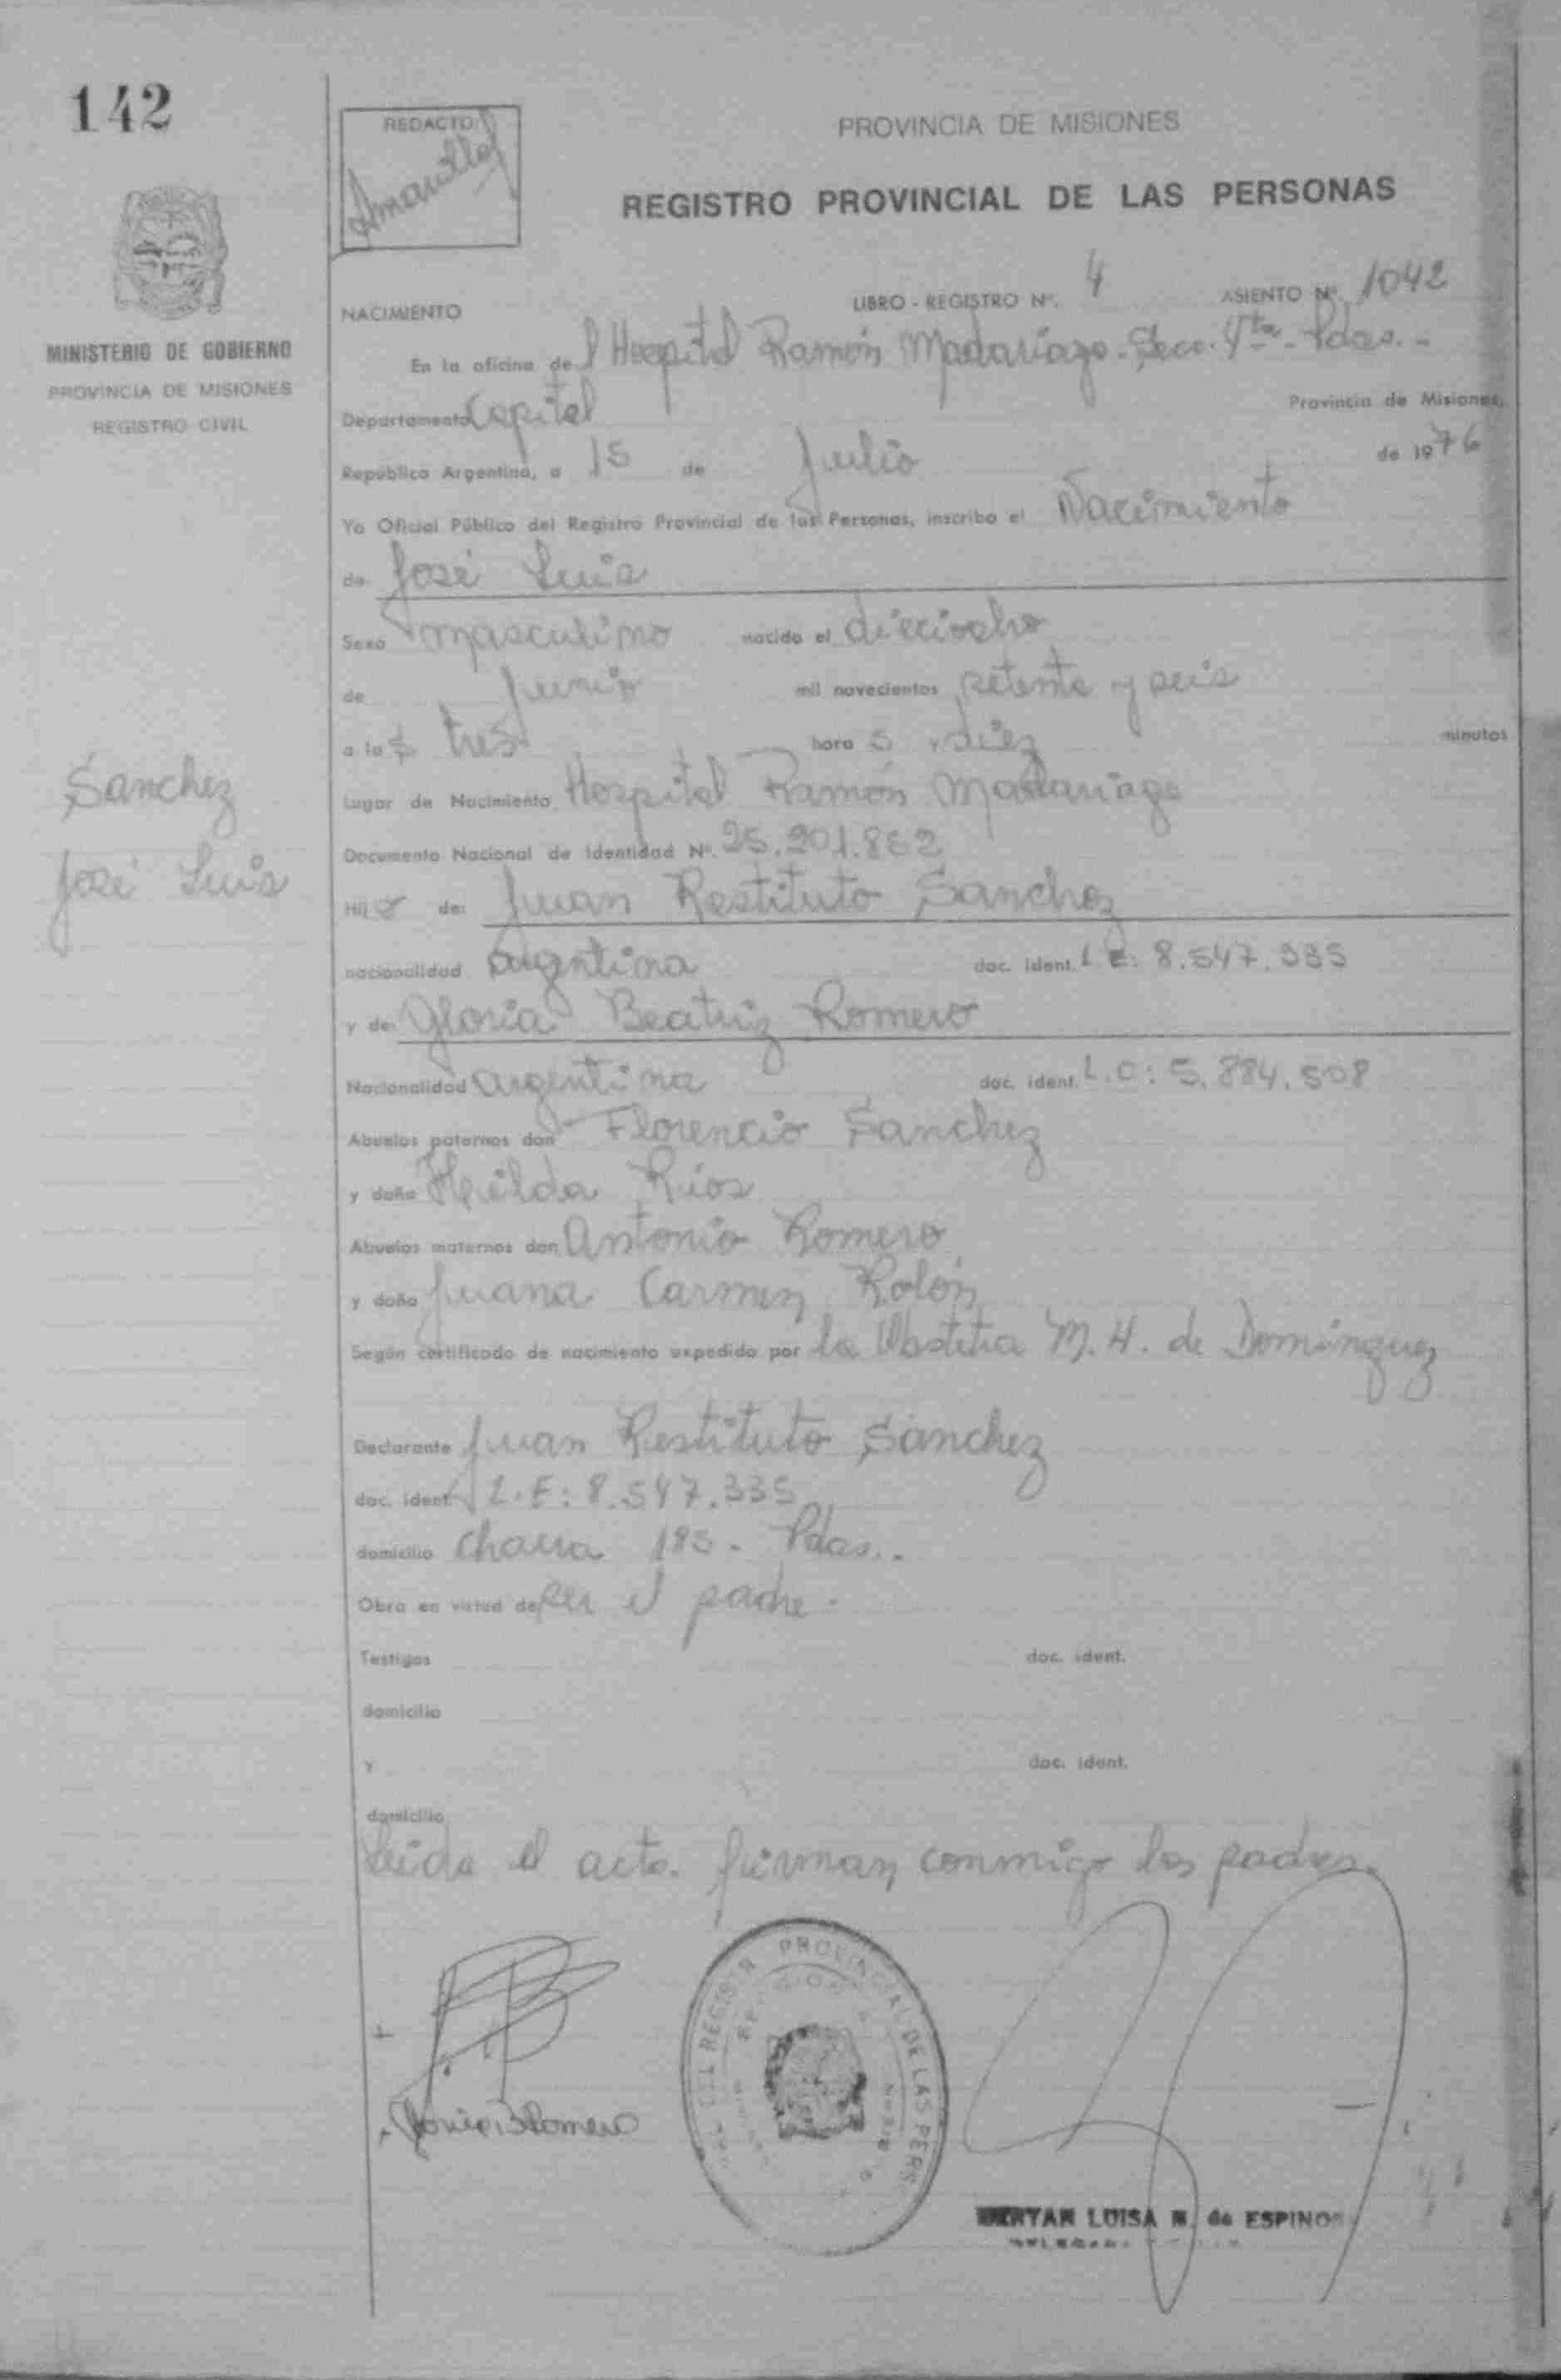 142
REDACTO
Amarilla
PROVINCIA DE MISIONES
REGISTRO PROVINCIAL DE LAS PERSONAS
MINISTERIO DE GOBIERNO
PROVINCIA DE MISIONES
REGISTRO CIVIL
NACIMIENTO LIBRO - REGISTRO Nº. 4 ASIENTO Nº. 1042
En la oficina del Hospital Ramón Madariaga. Secc. 4ta. Pdas.-
Departamento Capital Provincia de Misiones,
República Argentina, a 15 de Julio de 1976
Yo Oficial Público del Registro Provincial de las Personas, inscribo el Nacimiento
de José Luis
Sexo masculino nacido el dieciocho
de junio mil novecientos setenta y seis
a las tres hora s , diez minutos
Lugar de Nacimiento Hospital Ramón Madariaga
Documento Nacional de Identidad Nº. 25.201.862
Sanchez
José Luis
Hijo de: Juan Restituto Sanchez
nacionalidad argentina doc. ident. L.E: 8.547.335
y de: Gloria Beatriz Romero
Nacionalidad argentina doc. ident. L.C: 5.884.508
Abuelos paternos don Florencio Sanchez
y doña Hilda Rios
Abuelos maternos don Antonio Romero
y doña Juana Carmen Rolón
Según certificado de nacimiento expedido por la Obstetra M. H. de Domínguez
Declarante Juan Restituto Sanchez
doc. ident. L.E: 8.547.335
domicilio Chacra 185. Pdas..
Obra en virtud de ser el padre.
Testigos doc. ident.
domicilio
y doc. ident.
domicilio
Leida el acta. firman conmigo los padres.
Gloria B Romero
REGISTR PROVINCIAL DE LAS PERS
LUISA M. de ESPINOS